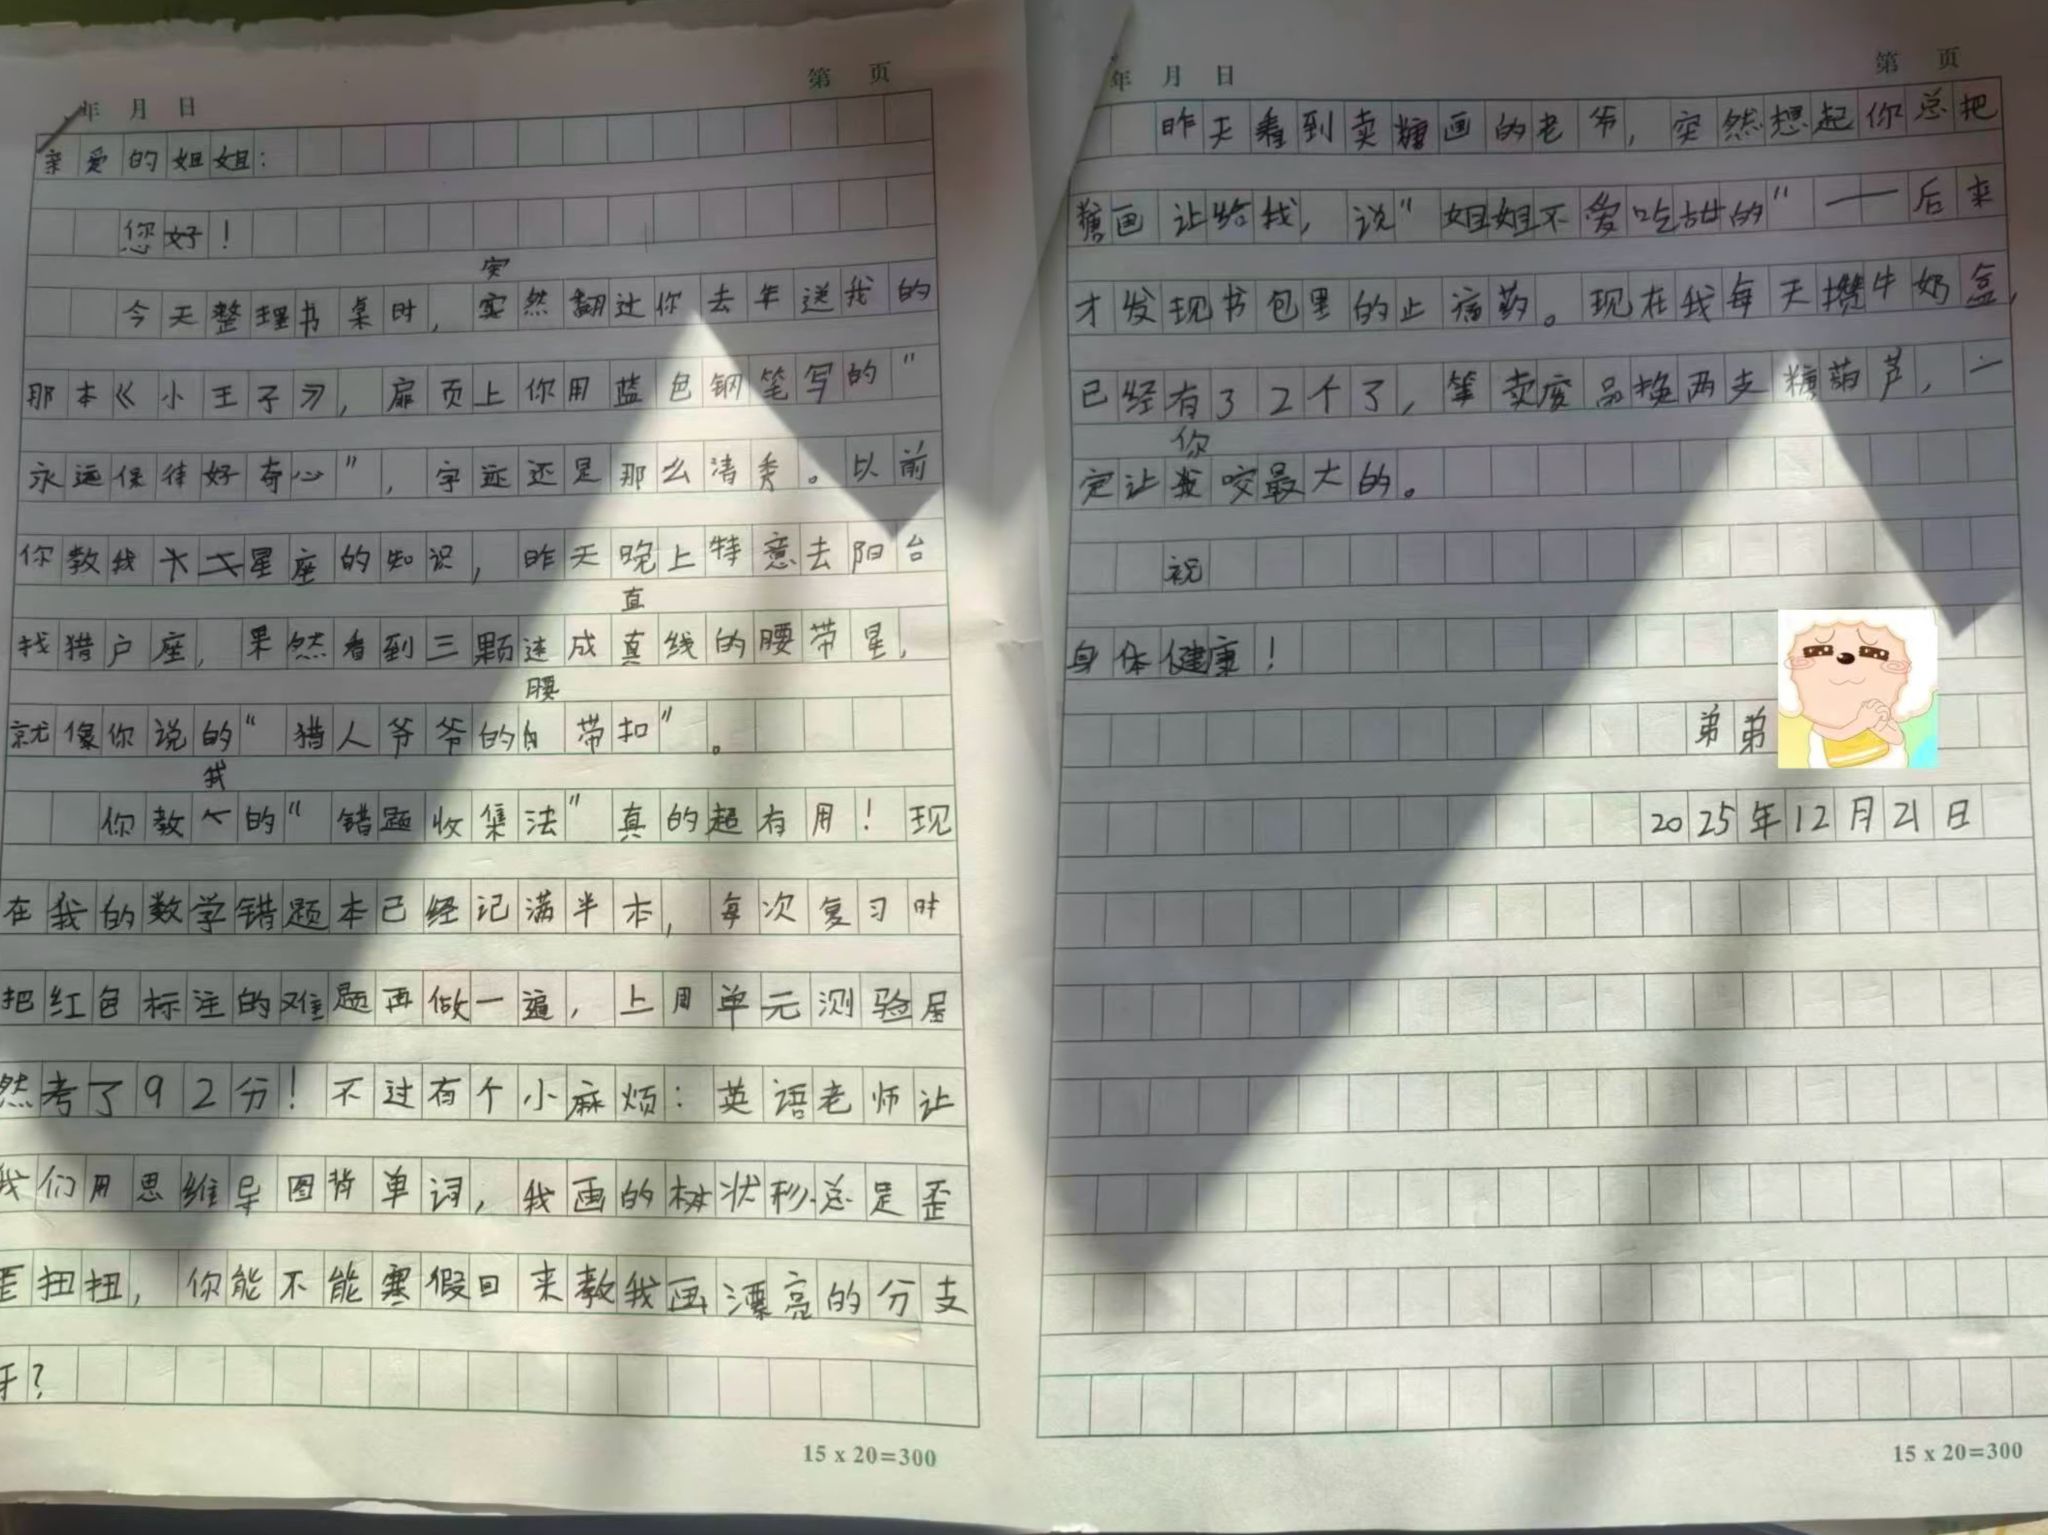 年 月 日
第 页
亲爱的姐姐：
您好！
突
今天整理书桌时，突然翻过你去年送我的
那本《小王子》，扉页上你用蓝色钢笔写的"
永远保持好奇心"，字迹还是那么清秀。以前
你教我 星座的知识，昨天晚上特意去阳台
找猎户座，果然看到三颗连成真线的腰带星，
直
就像你说的"猎人爷爷的 带扣"。
腰
我
你教 的"错题收集法"真的超有用！现
在我的数学错题本已经记满半本，每次复习时
把红色标注的难题再做一遍，上周单元测验居
然考了92分！不过有个小麻烦：英语老师让
我们用思维导图背单词，我画的树状 总是歪
歪扭扭，你能不能寒假回来教我画漂亮的分支
呀？
15 x 20=300
年 月 日
第 页
昨天看到卖糖画的老爷，突然想起你总把
糖画让给我，说"姐姐不爱吃甜的"——后来
才发现书包里的止痛药。现在我每天攒牛奶盒，
已经有32个了，等卖废品换两支糖葫芦，一
你
定让我咬最大的。
祝
身体健康！
弟弟
2025年12月21日
15 x 20=300